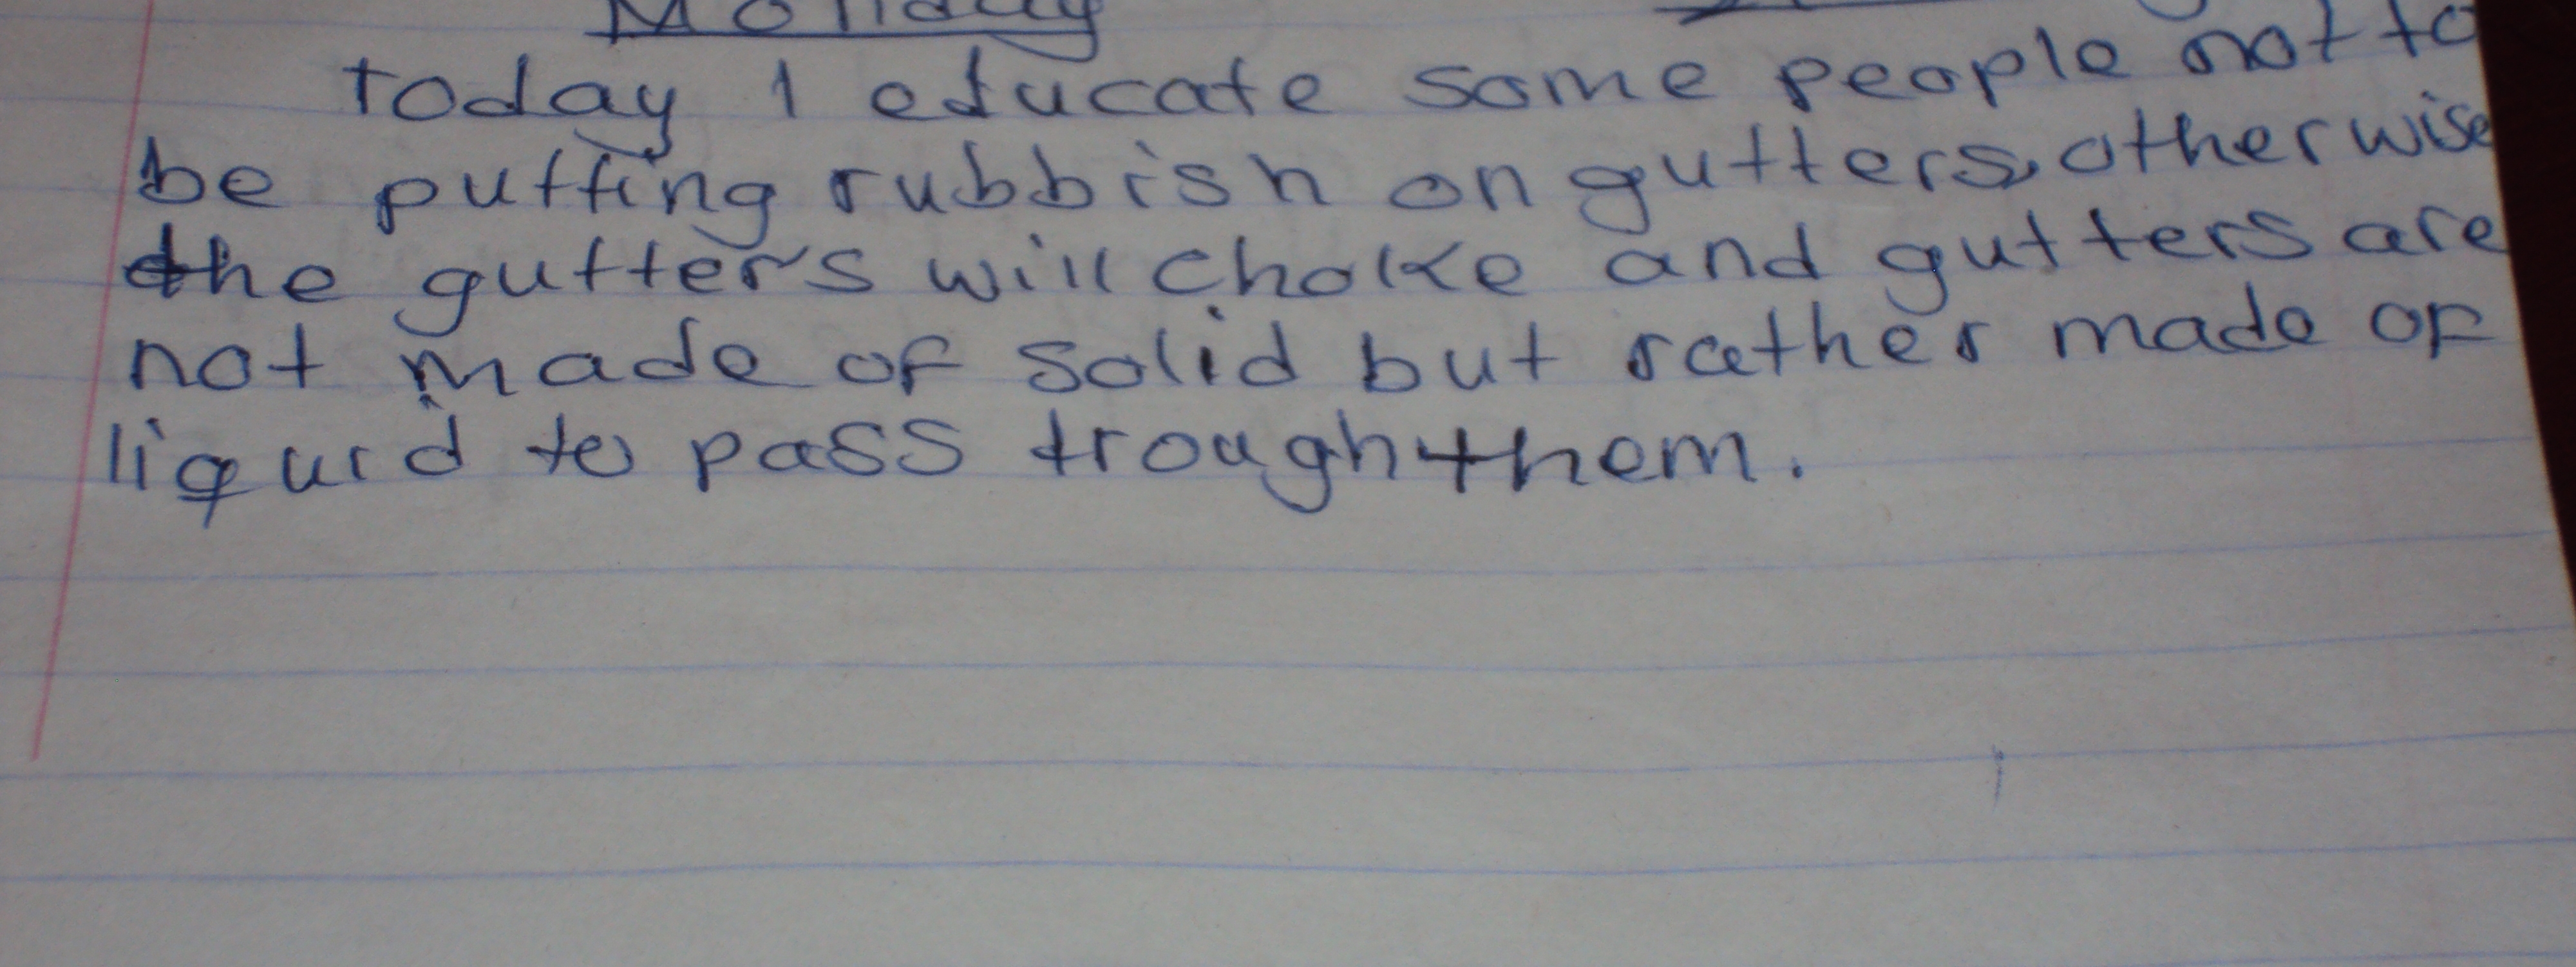 Monday
Today I educate some people not to
be putting rubbish on gutters, otherwise
the gutters will choke and gutters are
not made of solid but rather made of
liquid to pass trough them.